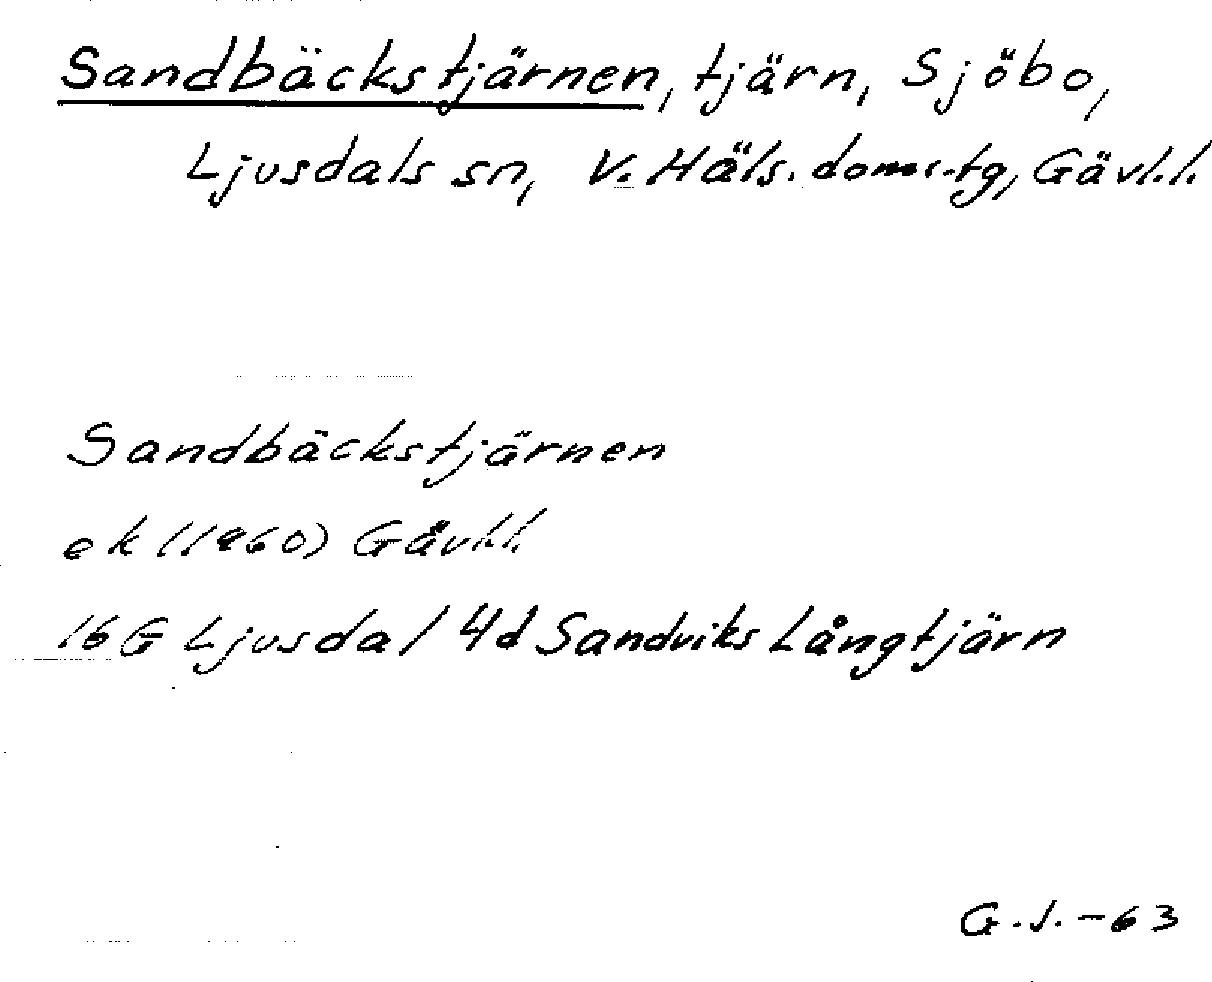 Sandbäckstjärnen, tjärn, Sjöbo,
Ljusdals sn, V. Häls. doms.tg, Gävl.l.
Sandbäckstjärnen
ek (1960) Gävl.l.
16G Ljusdal 4d Sandviks Långtjärn
G.J.-63